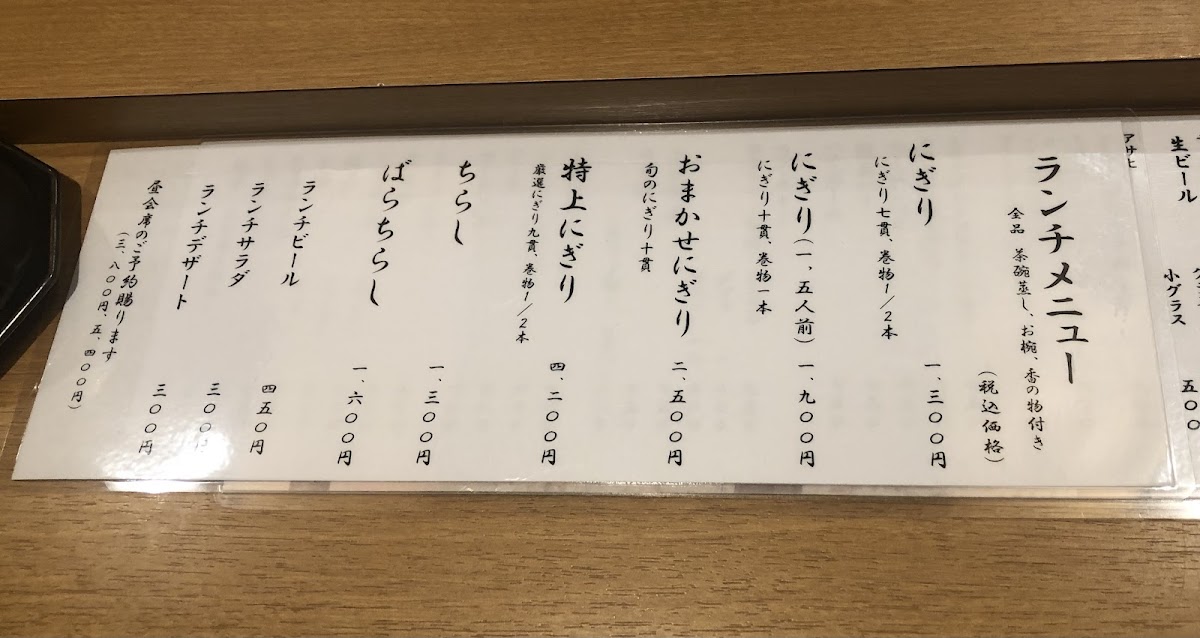 生ビール
小グラス
五〇〇
アサヒ
ランチメニュー
全品 茶碗蒸し、お椀、香の物付き
(税込価格)
にぎり 一、三〇〇円
にぎり七貫、巻物1/2本
にぎり(一、五人前) 一、九〇〇円
にぎり十貫、巻物一本
おまかせにぎり 二、五〇〇円
旬のにぎり十貫
特上にぎり 四、二〇〇円
厳選にぎり九貫、巻物1/2本
ちらし 一、三〇〇円
ばらちらし 一、六〇〇円
ランチビール 四五〇円
ランチサラダ 三〇〇円
ランチデザート 三〇〇円
昼会席のご予約賜ります
(三、八〇〇円、五、四〇〇円)